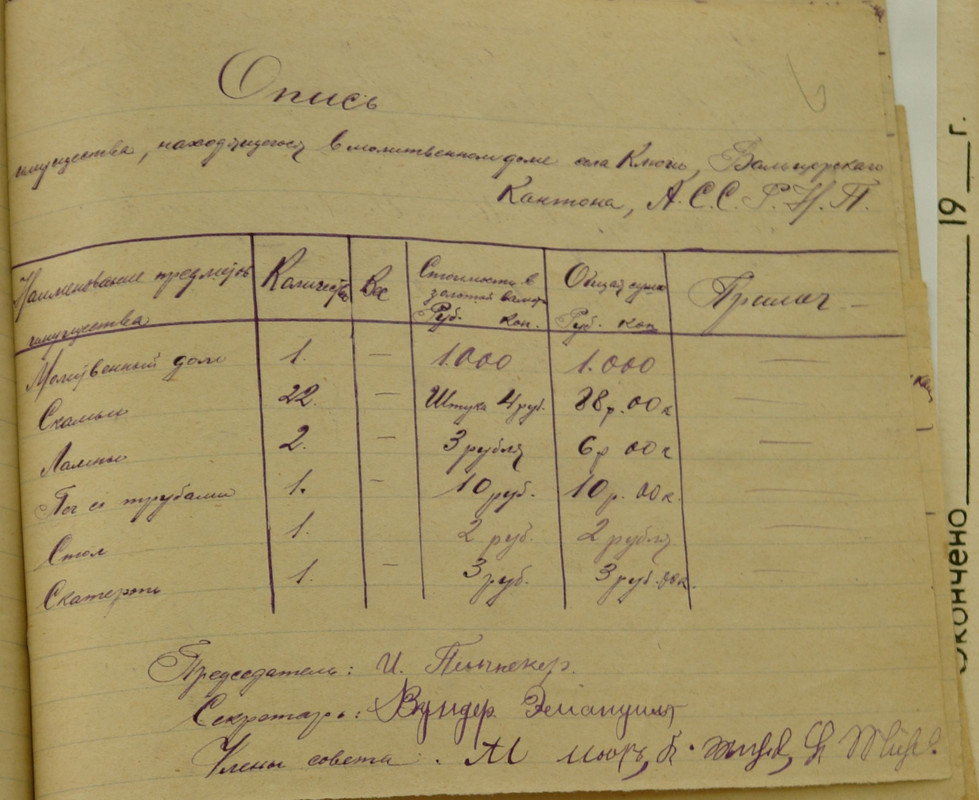 6
Опись
имущества, находящегося в молитвенном доме села Ключи, Бальцерскаго
Кантона, А.С.С.Р.Н.П.
Наименование предметов имущества
Количество
Вес
Стоимость в золотой валюте
Руб. коп.
Общая сумма
Руб. коп.
Примеч —
Молитвенный дом 1. — 1.000 1.000 —
Скамьи 22. — Штука 4 руб. 88 р. 00 к —
Лампы 2. — 3 рубля 6 р 00 к —
Печ с трубами 1. — 10 руб. 10 р. 00 к. —
Стол 1. 2 руб. 2 рубля —
Скатерть 1. — 3 руб. 3 руб. 00 к. —
Председатель: И.
Секретарь: Вундер Эмануил
Члены совета: М
Окончено 19 г.